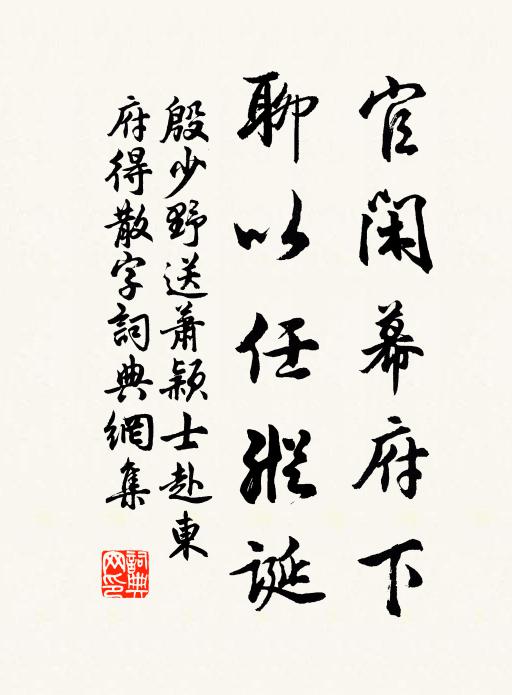 官閑幕府下
聊以任縱誕
殷少野送蕭穎士赴東
府得散字詞典網集
詞典
网印